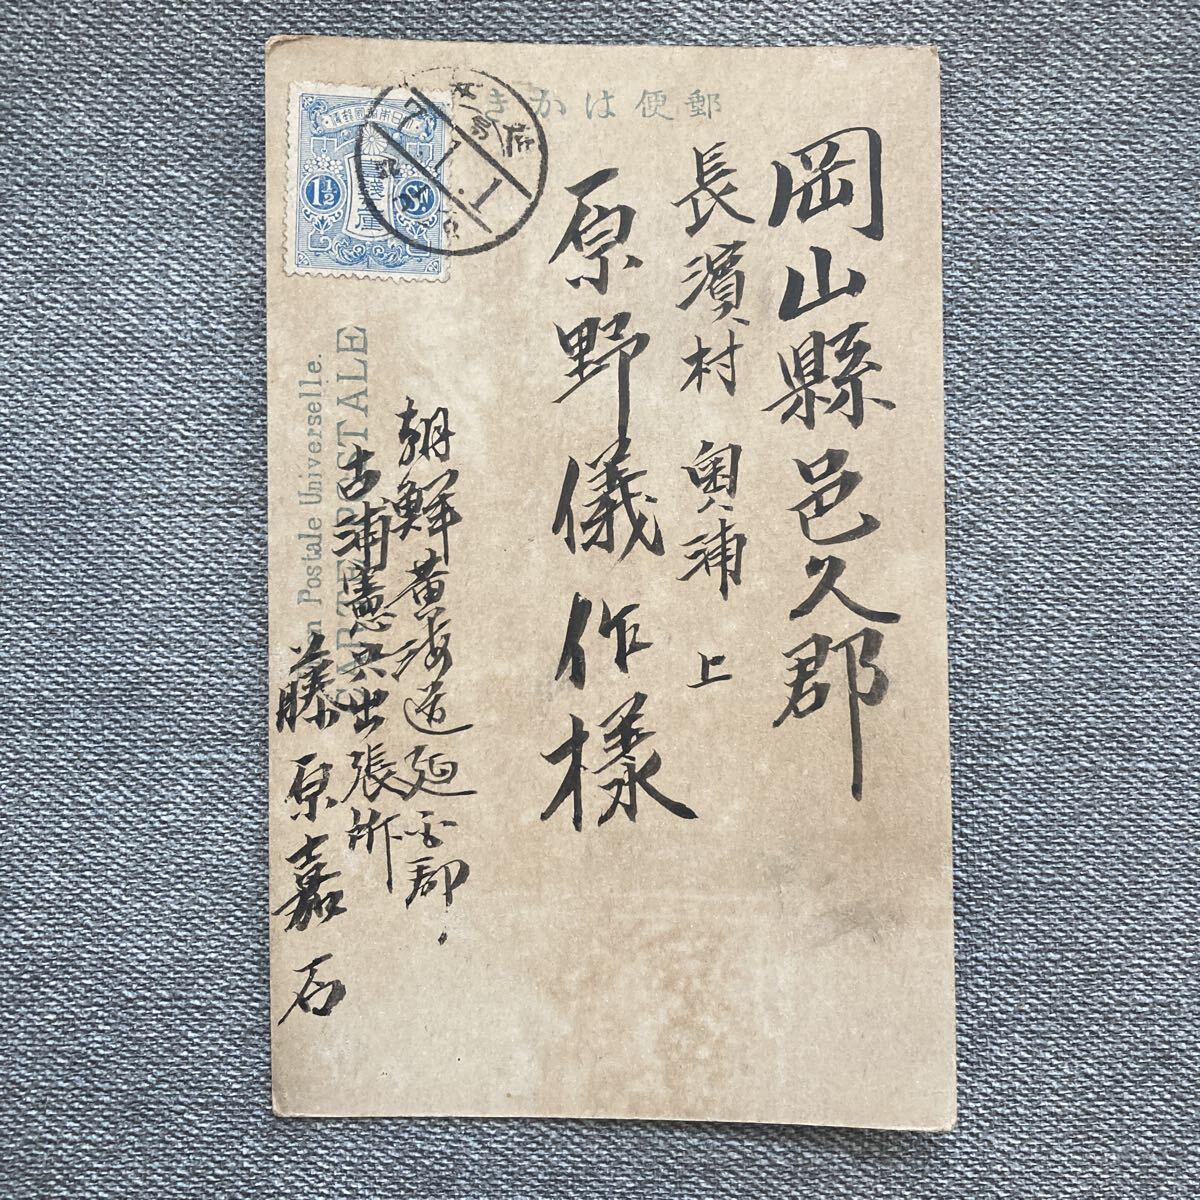 郵便はかき
岡山縣邑久郡
長濱村奥浦上
原野儀作様
朝鮮黄海道延白郡
古浦憲兵出張所
藤原嘉石
on Postale Universelle.
CARTE POSTALE
大日本帝國郵便
壹錢五厘
1½ Sn.
7.1.1